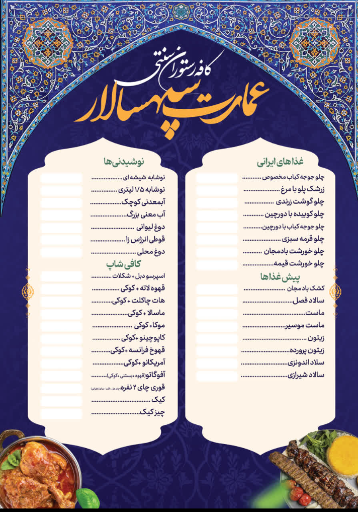 کافه رستوران سنتی
عمارت سپهسالار
غذاهای ایرانی
چلو جوجه کباب مخصوص
زرشک پلو با مرغ
چلو گوشت زرندی
چلو کوبیده با دورچین
چلو جوجه کباب با دورچین
چلو قرمه سبزی
چلو خورشت بادمجان
چلو خورشت قیمه
پیش غذاها
کشک بادمجان
سالاد فصل
ماست
ماست موسیر
زیتون
زیتون پرورده
سلاد اندونزی
سالاد شیرازی
نوشیدنی‌ها
نوشابه شیشه ای
نوشابه ۱/۵ لیتری
آبمعدنی کوچک
آب معنی بزرگ
دوغ لیوانی
قوطی انرژی زا
دوغ محلی
کافی شاپ
اسپرسو دبل + شکلات
قهوه لاته + کوکی
هات چاکلت + کوکی
ماسالا + کوکی
موکا + کوکی
کاپوچینو + کوکی
قهوخ فرانسه + کوکی
آمریکانو + کوکی
آفوگاتو
قوری چای ۲ نفره
کیک
چیز کیک